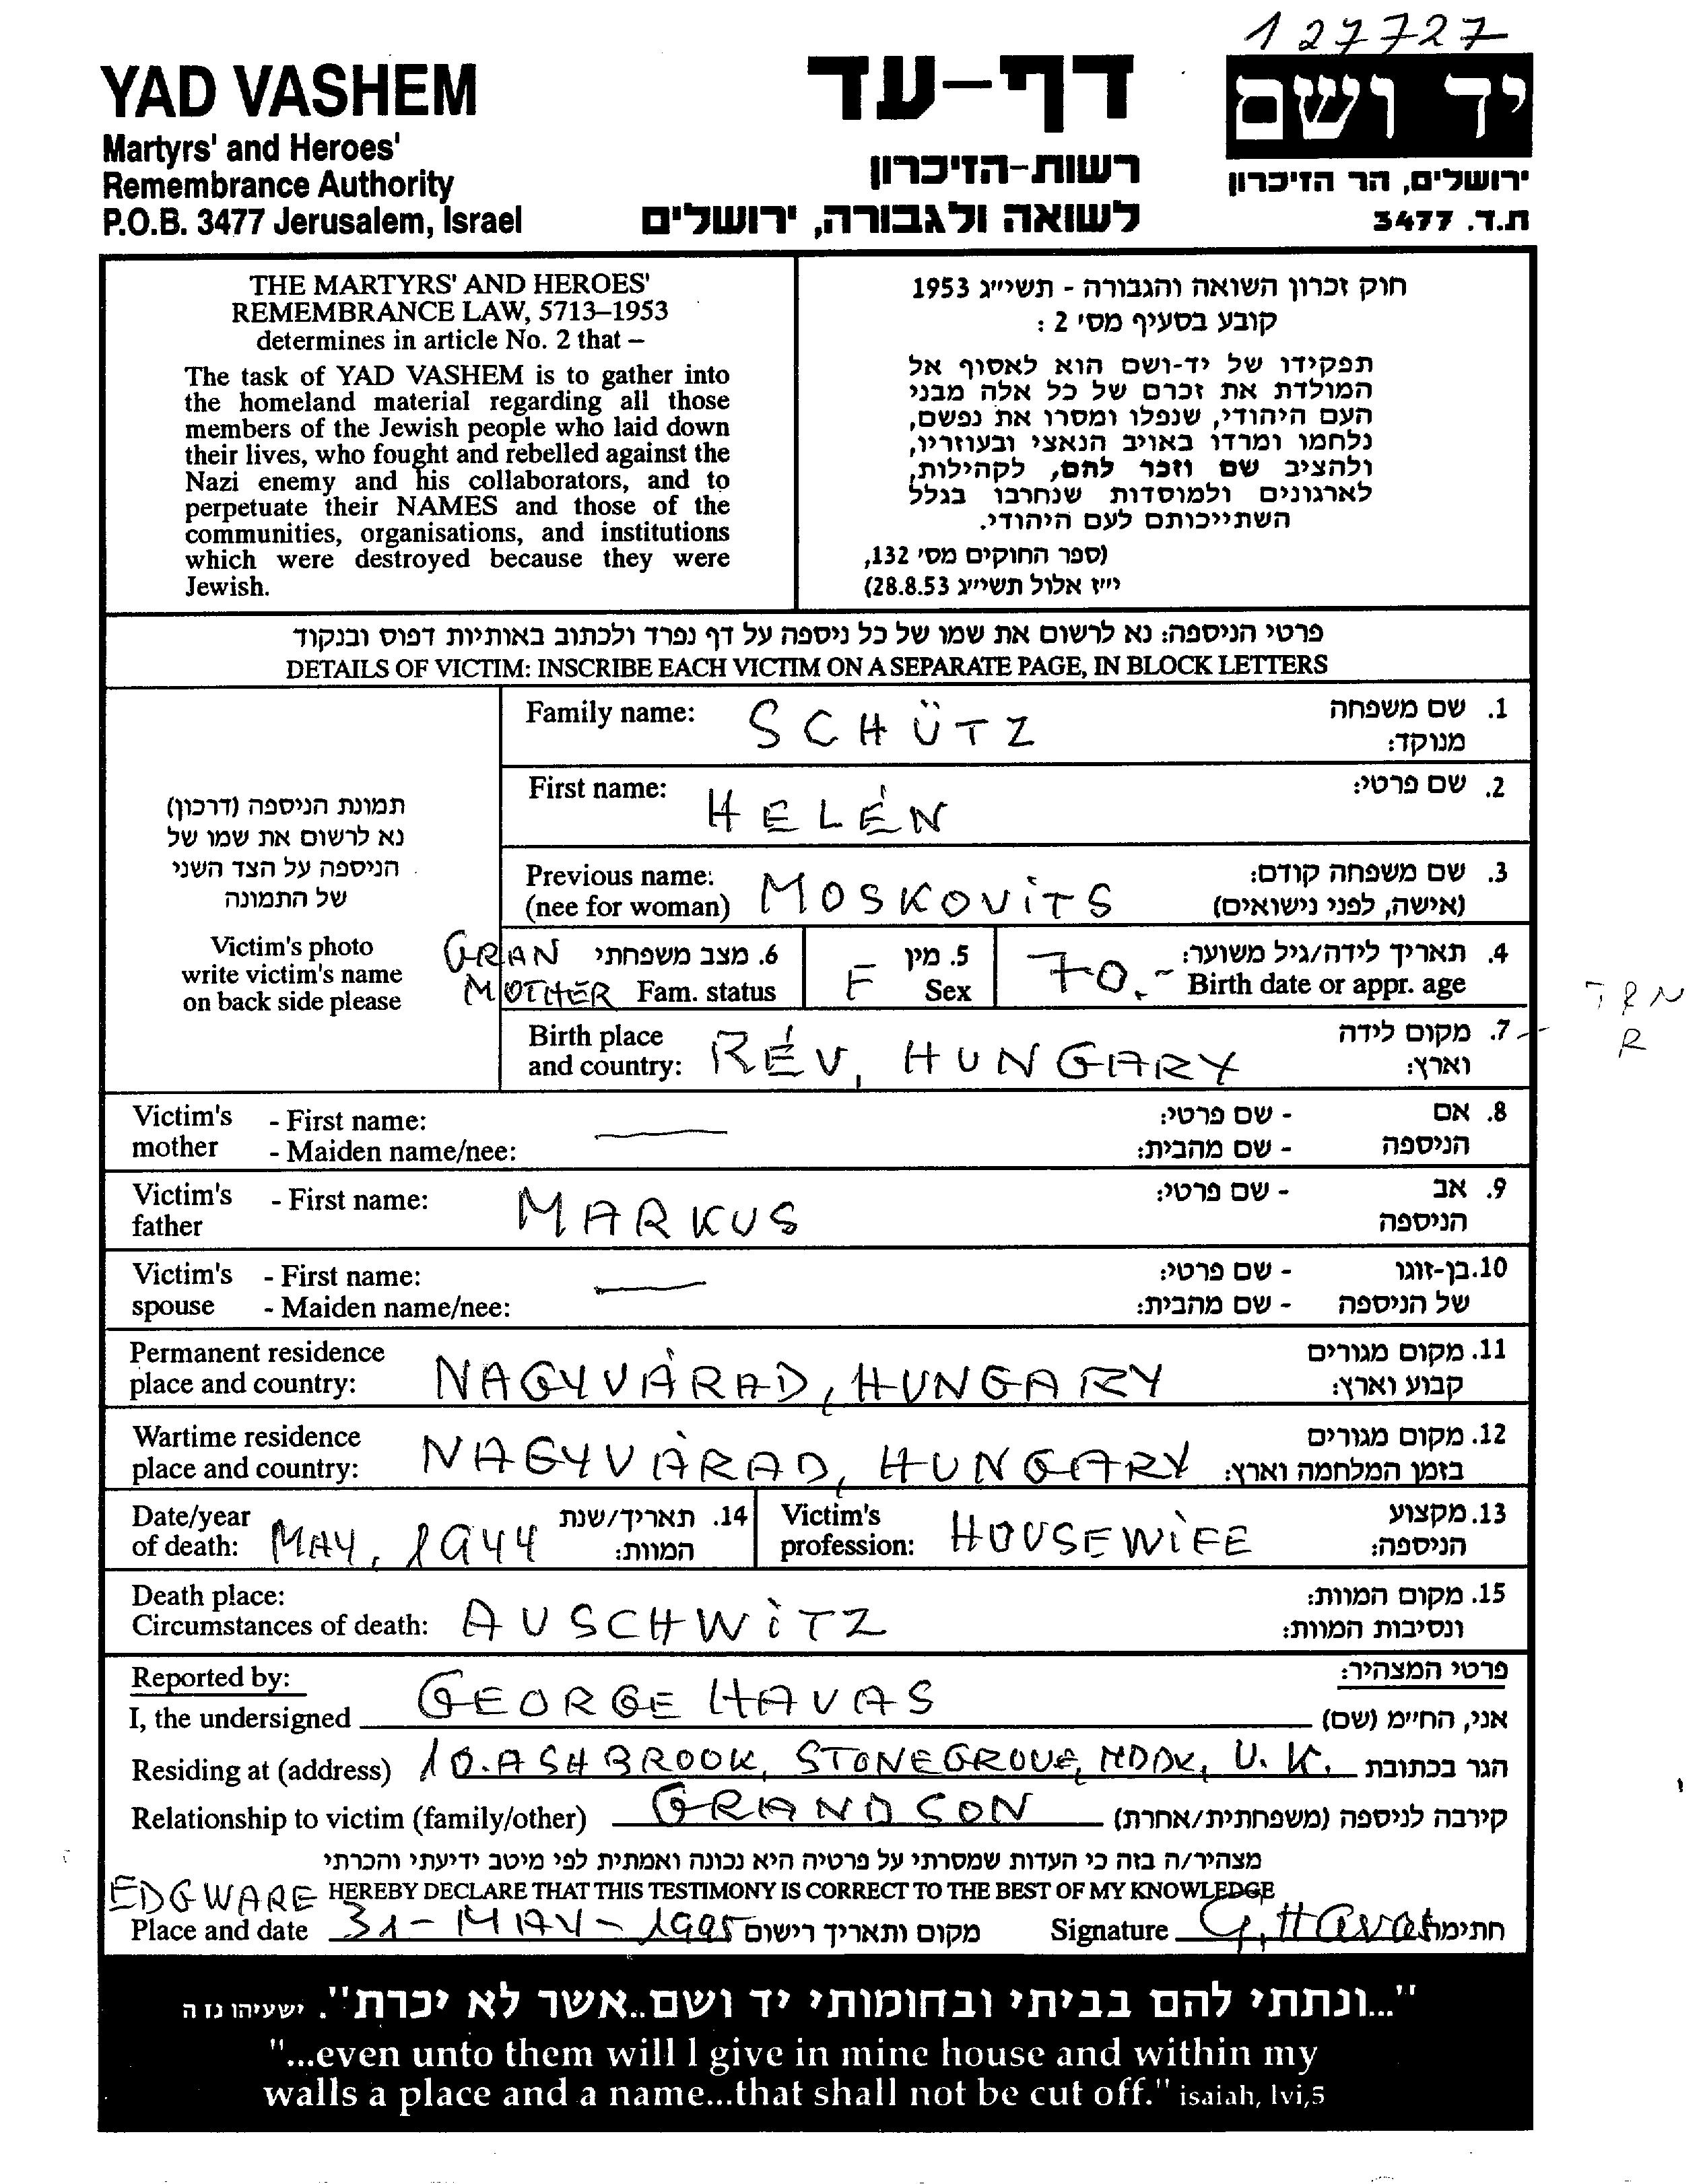 127727
YAD VASHEM
Martyrs' and Heroes'
Remembrance Authority
P.O.B. 3477 Jerusalem, Israel
דף-עד
רשות-הזיכרון
לשואה ולגבורה, ירושלים
יד ושם
ירושלים, הר הזיכרון
ת.ד. 3477
THE MARTYRS' AND HEROES'
REMEMBRANCE LAW, 5713–1953
determines in article No. 2 that –
The task of YAD VASHEM is to gather into
the homeland material regarding all those
members of the Jewish people who laid down
their lives, who fought and rebelled against the
Nazi enemy and his collaborators, and to
perpetuate their NAMES and those of the
communities, organisations, and institutions
which were destroyed because they were
Jewish.
חוק זכרון השואה והגבורה - תשי״ג 1953
קובע בסעיף מס׳ 2 :
תפקידו של יד-ושם הוא לאסוף אל
המולדת את זכרם של כל אלה מבני
העם היהודי, שנפלו ומסרו את נפשם,
נלחמו ומרדו באויב הנאצי ובעוזריו,
ולהציב שם וזכר להם, לקהילות,
לארגונים ולמוסדות שנחרבו בגלל
השתייכותם לעם היהודי.
(ספר החוקים מס׳ 132,
י״ז אלול תשי״ג 28.8.53)
פרטי הניספה: נא לרשום את שמו של כל ניספה על דף נפרד ולכתוב באותיות דפוס ובנקוד
DETAILS OF VICTIM: INSCRIBE EACH VICTIM ON A SEPARATE PAGE, IN BLOCK LETTERS
תמונת הניספה (דרכון)
נא לרשום את שמו של
הניספה על הצד השני
של התמונה
Victim's photo
write victim's name
on back side please
Family name: SCHÜTZ 1. שם משפחה
מנוקד:
First name: HELÉN 2. שם פרטי:
Previous name: MOSKOVITS 3. שם משפחה קודם:
(nee for woman) (אישה, לפני נישואים)
GRAN 6. מצב משפחתי 5. מין 4. תאריך לידה/גיל משוער:
MOTHER Fam. status F Sex 70.- Birth date or appr. age
Birth place RÉV, HUNGARY 7. מקום לידה
and country: וארץ:
TRN
R
Victim's - First name: — - שם פרטי: 8. אם
mother - Maiden name/nee: - שם מהבית: הניספה
Victim's - First name: MARKUS - שם פרטי: 9. אב
father הניספה
Victim's - First name: — - שם פרטי: 10. בן-זוגו
spouse - Maiden name/nee: - שם מהבית: של הניספה
Permanent residence 11. מקום מגורים
place and country: NAGYVÁRAD, HUNGARY קבוע וארץ:
Wartime residence 12. מקום מגורים
place and country: NAGYVÁRAD, HUNGARY בזמן המלחמה וארץ:
Date/year 14. תאריך/שנת Victim's 13. מקצוע
of death: MAY, 1944 המוות: profession: HOUSEWIFE הניספה:
Death place: 15. מקום המוות:
Circumstances of death: AUSCHWITZ ונסיבות המוות:
Reported by: פרטי המצהיר:
I, the undersigned GEORGE HAVAS אני, החיימ (שם)
Residing at (address) 10. ASHBROOK, STONEGROVE, MDDX, U. K. הגר בכתובת
Relationship to victim (family/other) GRANDSON קירבה לניספה (משפחתית/אחרת)
מצהיר/ה בזה כי העדות שמסרתי על פרטיה היא נכונה ואמתית לפי מיטב ידיעתי והכרתי
EDGWARE HEREBY DECLARE THAT THIS TESTIMONY IS CORRECT TO THE BEST OF MY KNOWLEDGE
Place and date 31 - MAY - 1995 מקום ותאריך רישום Signature G, Havas חתימה
"...ונתתי להם בביתי ובחומותי יד ושם..אשר לא יכרת". ישעיהו נז ה
"...even unto them will I give in mine house and within my
walls a place and a name...that shall not be cut off." isaiah, lvi,5